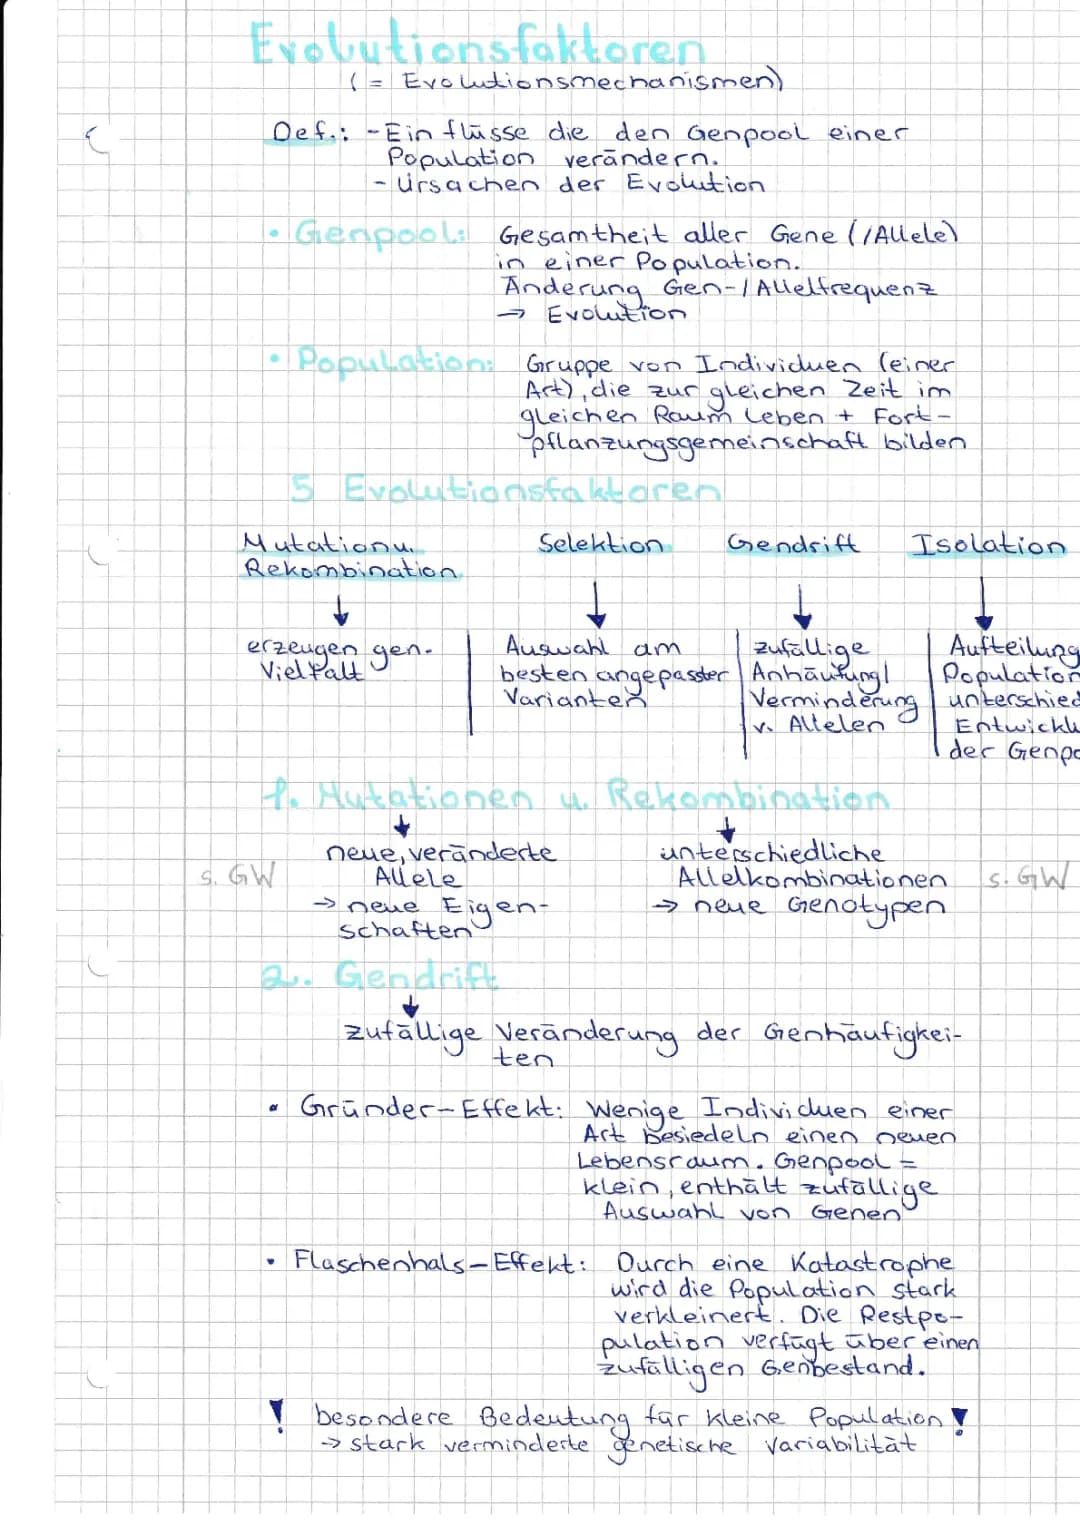 Evolutionsfaktoren
(= Evolutionsmechanismen)
Def.: - Einflüsse die den Genpool einer
Population verändern.
- Ursachen der Evolution
• Genpool: Gesamtheit aller Gene (/Allele)
in einer Population.
Änderung Gen-/Allelfrequenz
→ Evolution
• Population: Gruppe von Individuen (einer
Art), die zur gleichen Zeit im
gleichen Raum leben + Fort-
pflanzungsgemeinschaft bilden
5 Evolutionsfaktoren
Mutation u. Selektion Gendrift Isolation
Rekombination
↓ ↓ ↓ ↓
erzeugen gen. Auswahl am zufällige Aufteilung
Vielfalt besten angepasster Anhäufung/ Population
Varianten Verminderung unterschied
v. Allelen Entwicklu
der Genpo
1. Mutationen u. Rekombination
↓ ↓
neue, veränderte unterschiedliche
s. GW Allele Allelkombinationen s. GW
→ neue Eigen- → neue Genotypen
schaften
2. Gendrift
↓
zufällige Veränderung der Genhäufigkei-
ten
• Gründer-Effekt: Wenige Individuen einer
Art besiedeln einen neuen
Lebensraum. Genpool =
klein, enthält zufällige
Auswahl von Genen
• Flaschenhals-Effekt: Durch eine Katastrophe
wird die Population stark
verkleinert. Die Restpo-
pulation verfügt über einen
zufälligen Genbestand.
! besondere Bedeutung für kleine Population !
→ stark verminderte genetische Variabilität